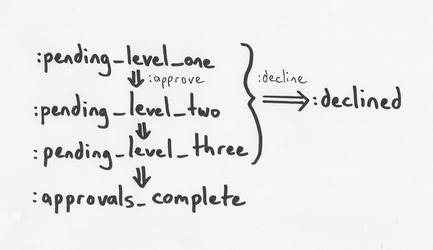 :pending_level_one
:approve
:decline
:pending_level_two
:declined
:pending_level_three
:approvals_complete